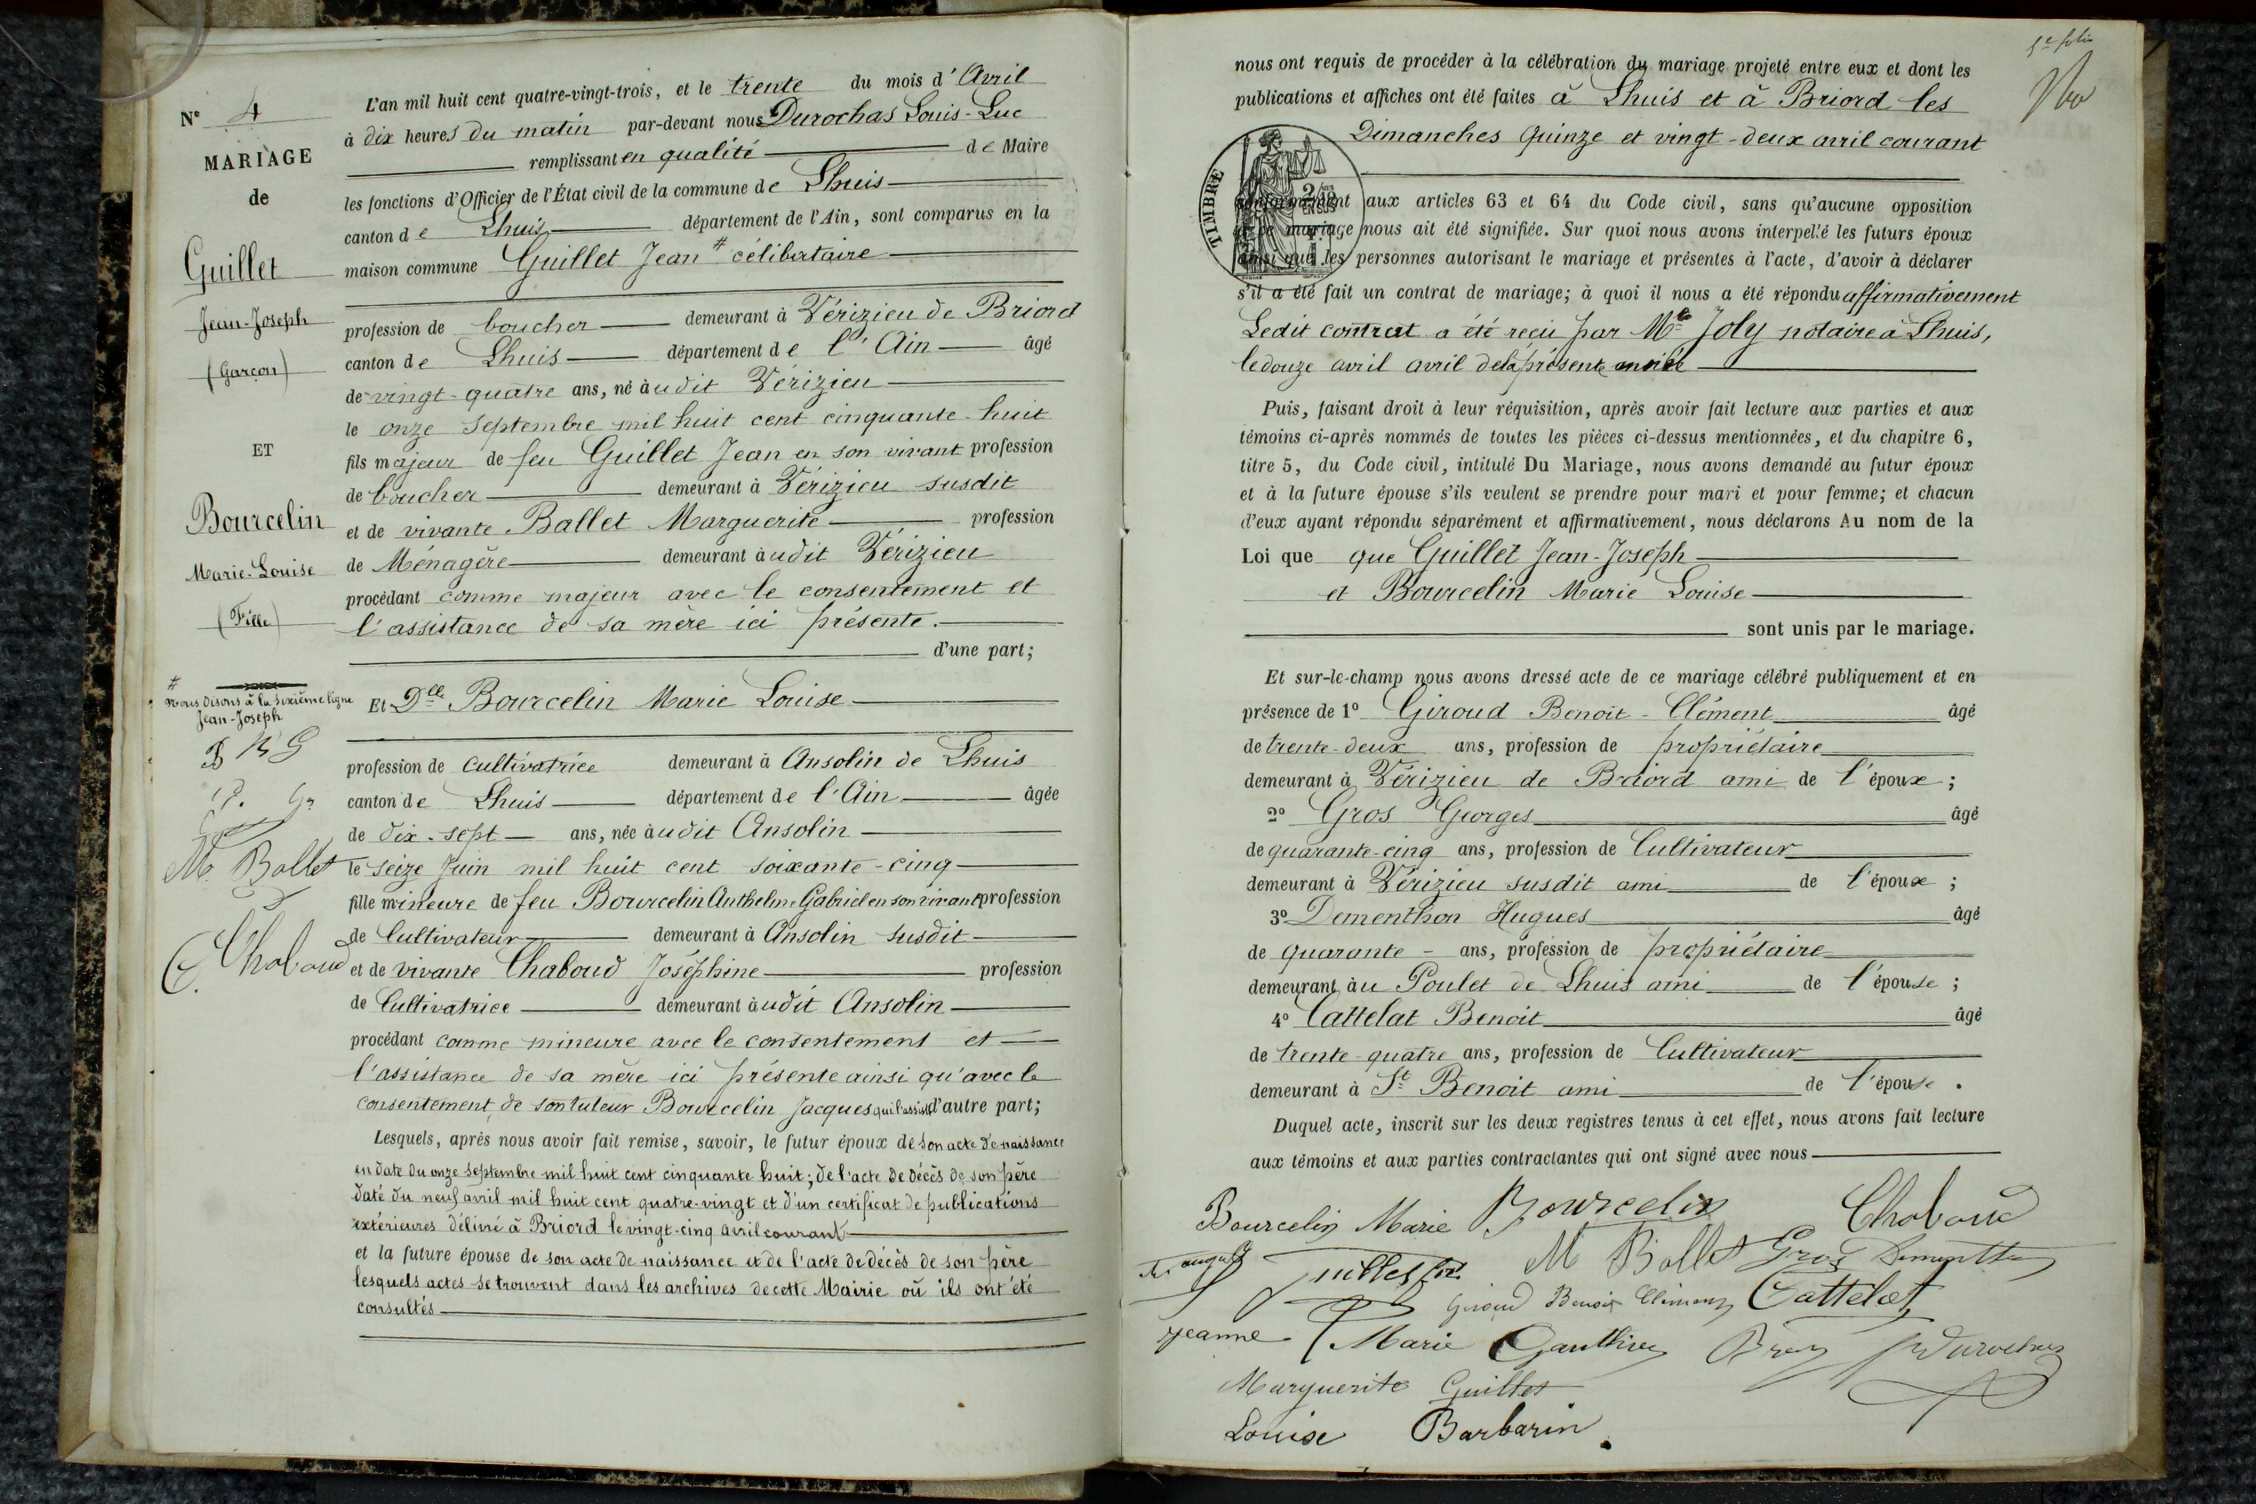 N° 4
MARIAGE
de
Guillet
Jean-Joseph
(Garçon)
ET
Bourcelin
Marie-Louise
(Fille)
#
nous disons à la sixième ligne
Jean-Joseph
M. Ballet
Chaboud
L'an mil huit cent quatre-vingt-trois, et le trente du mois d'Avril
à dix heures du matin par-devant nous Durochas Louis-Luc
remplissant en qualité de Maire
les fonctions d'Officier de l'État civil de la commune de Lhuis
canton de Lhuis département de l'Ain, sont comparus en la
maison commune Guillet Jean # célibataire
profession de boucher demeurant à Vérizieu de Briord
canton de Lhuis département de l'Ain âgé
de vingt-quatre ans, né àudit Vérizieu
le onze septembre mil huit cent cinquante-huit
fils majeur de feu Guillet Jean en son vivant profession
de boucher demeurant à Vérizieu susdit
et de vivante Ballet Marguerite profession
de Ménagère demeurant àudit Vérizieu
procédant comme majeur avec le consentement et
l'assistance de sa mère ici présente.
d'une part;
Et Dlle Bourcelin Marie Louise
profession de cultivatrice demeurant à Ansolin de Lhuis
canton de Lhuis département de l'Ain âgée
de dix-sept ans, née àudit Ansolin
le seize Juin mil huit cent soixante-cinq
fille mineure de feu Bourcelin Anthelme Gabriel en son vivant profession
de Cultivateur demeurant à Ansolin susdit
et de vivante Chaboud Joséphine profession
de Cultivatrice demeurant àudit Ansolin
procédant comme mineure avec le consentement et
l'assistance de sa mère ici présente ainsi qu'avec le
consentement de son tuteur Bourcelin Jacques qui l'assiste d'autre part;
Lesquels, après nous avoir fait remise, savoir, le futur époux de son acte de naissance
en date du onze septembre mil huit cent cinquante huit; de l'acte de décès de son père
daté du neuf avril mil huit cent quatre-vingt et d'un certificat de publications
extérieures délivré à Briord le vingt-cinq avril courant
et la future épouse de son acte de naissance et de l'acte de décès de son père
lesquels actes se trouvent dans les archives de cette Mairie où ils ont été
consultés
nous ont requis de procéder à la célébration du mariage projeté entre eux et dont les
publications et affiches ont été faites à Lhuis et à Briord les
Dimanches quinze et vingt-deux avril courant
TIMBRE
conformément aux articles 63 et 64 du Code civil, sans qu'aucune opposition
à ce mariage nous ait été signifiée. Sur quoi nous avons interpellé les futurs époux
ainsi que les personnes autorisant le mariage et présentes à l'acte, d'avoir à déclarer
s'il a été fait un contrat de mariage; à quoi il nous a été répondu affirmativement
Ledit contrat a été reçu par Me Joly notaire à Lhuis,
le douze avril avril de la présente année
Puis, faisant droit à leur réquisition, après avoir fait lecture aux parties et aux
témoins ci-après nommés de toutes les pièces ci-dessus mentionnées, et du chapitre 6,
titre 5, du Code civil, intitulé Du Mariage, nous avons demandé au futur époux
et à la future épouse s'ils veulent se prendre pour mari et pour femme; et chacun
d'eux ayant répondu séparément et affirmativement, nous déclarons Au nom de la
Loi que que Guillet Jean-Joseph
et Bourcelin Marie Louise
sont unis par le mariage.
Et sur-le-champ nous avons dressé acte de ce mariage célébré publiquement et en
présence de 1° Giroud Benoit-Clément âgé
de trente-deux ans, profession de propriétaire
demeurant à Vérizieu de Briord ami de l'époux;
2° Gros Georges âgé
de quarante-cinq ans, profession de Cultivateur
demeurant à Vérizieu susdit ami de l'époux;
3° Dementhon Hugues âgé
de quarante ans, profession de propriétaire
demeurant àu Poulet de Lhuis ami de l'épouse;
4° Cattelat Benoit âgé
de trente-quatre ans, profession de Cultivateur
demeurant à St Benoit ami de l'épouse.
Duquel acte, inscrit sur les deux registres tenus à cet effet, nous avons fait lecture
aux témoins et aux parties contractantes qui ont signé avec nous
Bourcelin Marie Bourcelin Chaboud
Guillet M Ballet Gros Dementhon
Giroud Benoit Clément Cattelat
Jeanne Marie Gauthier Durochas
Marguerite Guillet
Louise Barbarin